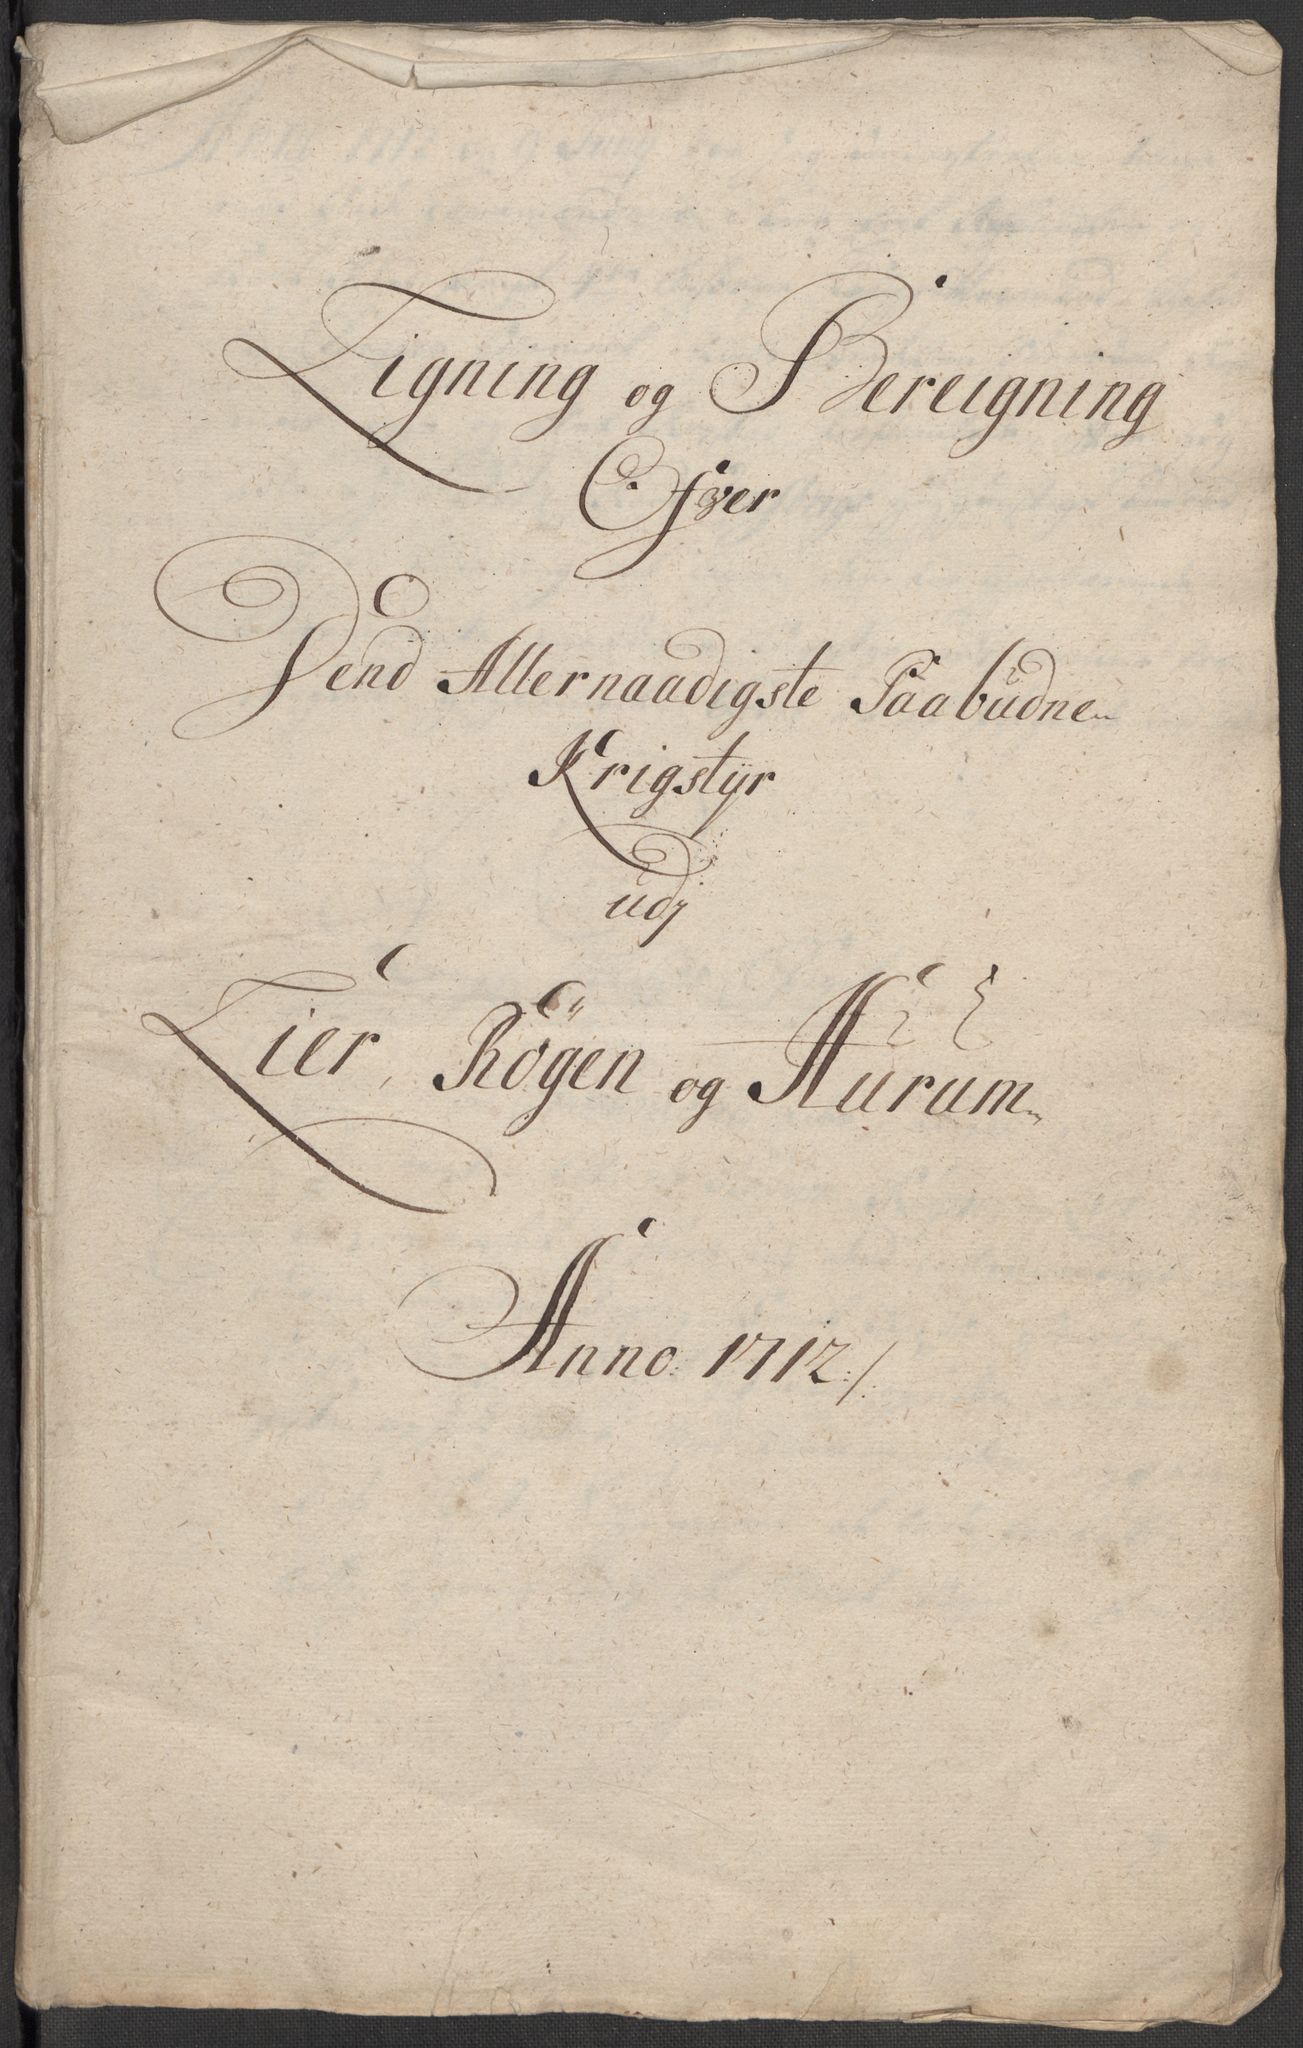 Ligning og Bereigning
Ofver
Dend Allernaadigste Paabudne
Krigstyr
udj
Lier, Rögen og Hurum
Anno 1712